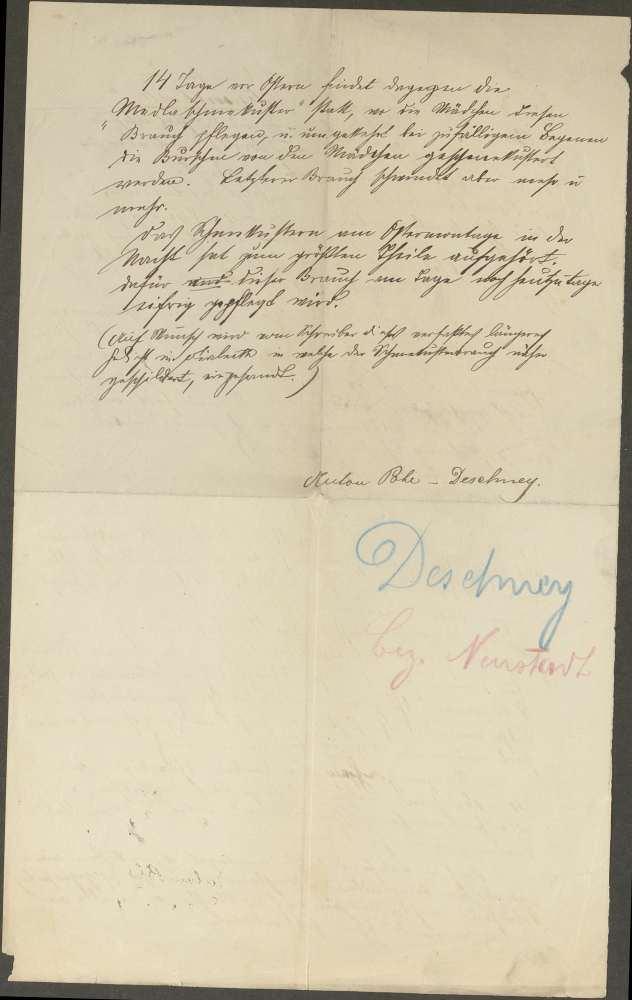 14 Tage vor Ostern findet dagegen die
"Madlaschmekuster" statt, wo die Mädchen diesen
Brauch pflegen, u. umgekehrt bei zufälligem Begegnen
die Burschen von den Mädchen geschmekustert
werden. Letzterer Brauch schwindet aber mehr u
mehr.
Das Schmekustern am Ostermontage in der
Nacht hat zum größten Theile aufgehört,
dafür und dieser Brauch am Tage noch heutzutage
eifrig gepflegt wird.
(Auf Wunsch wird vom Schreiber dieses verfasstes längeres
in Dialecte in welche der Schmekusterbrauch näher
geschildert, eingesandt.)
Anton Pohl - Deschney.
Deschney
bez. Neustadt